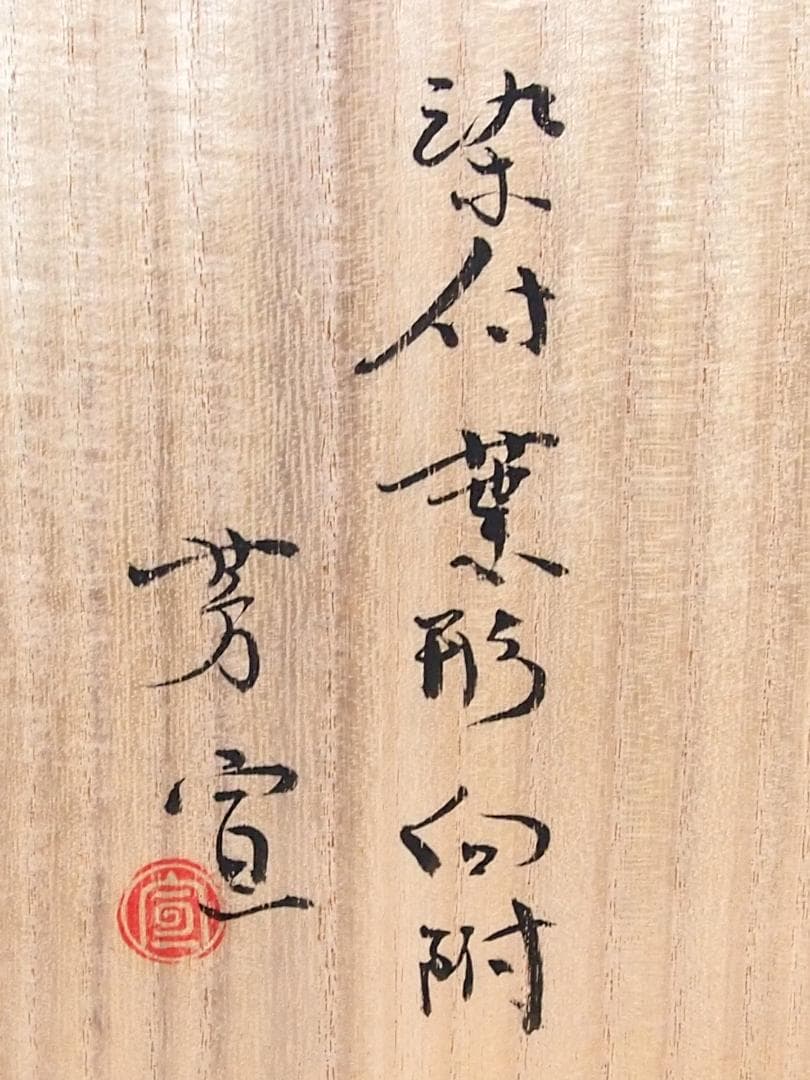 染付 葉形 向附
芳宣
宣